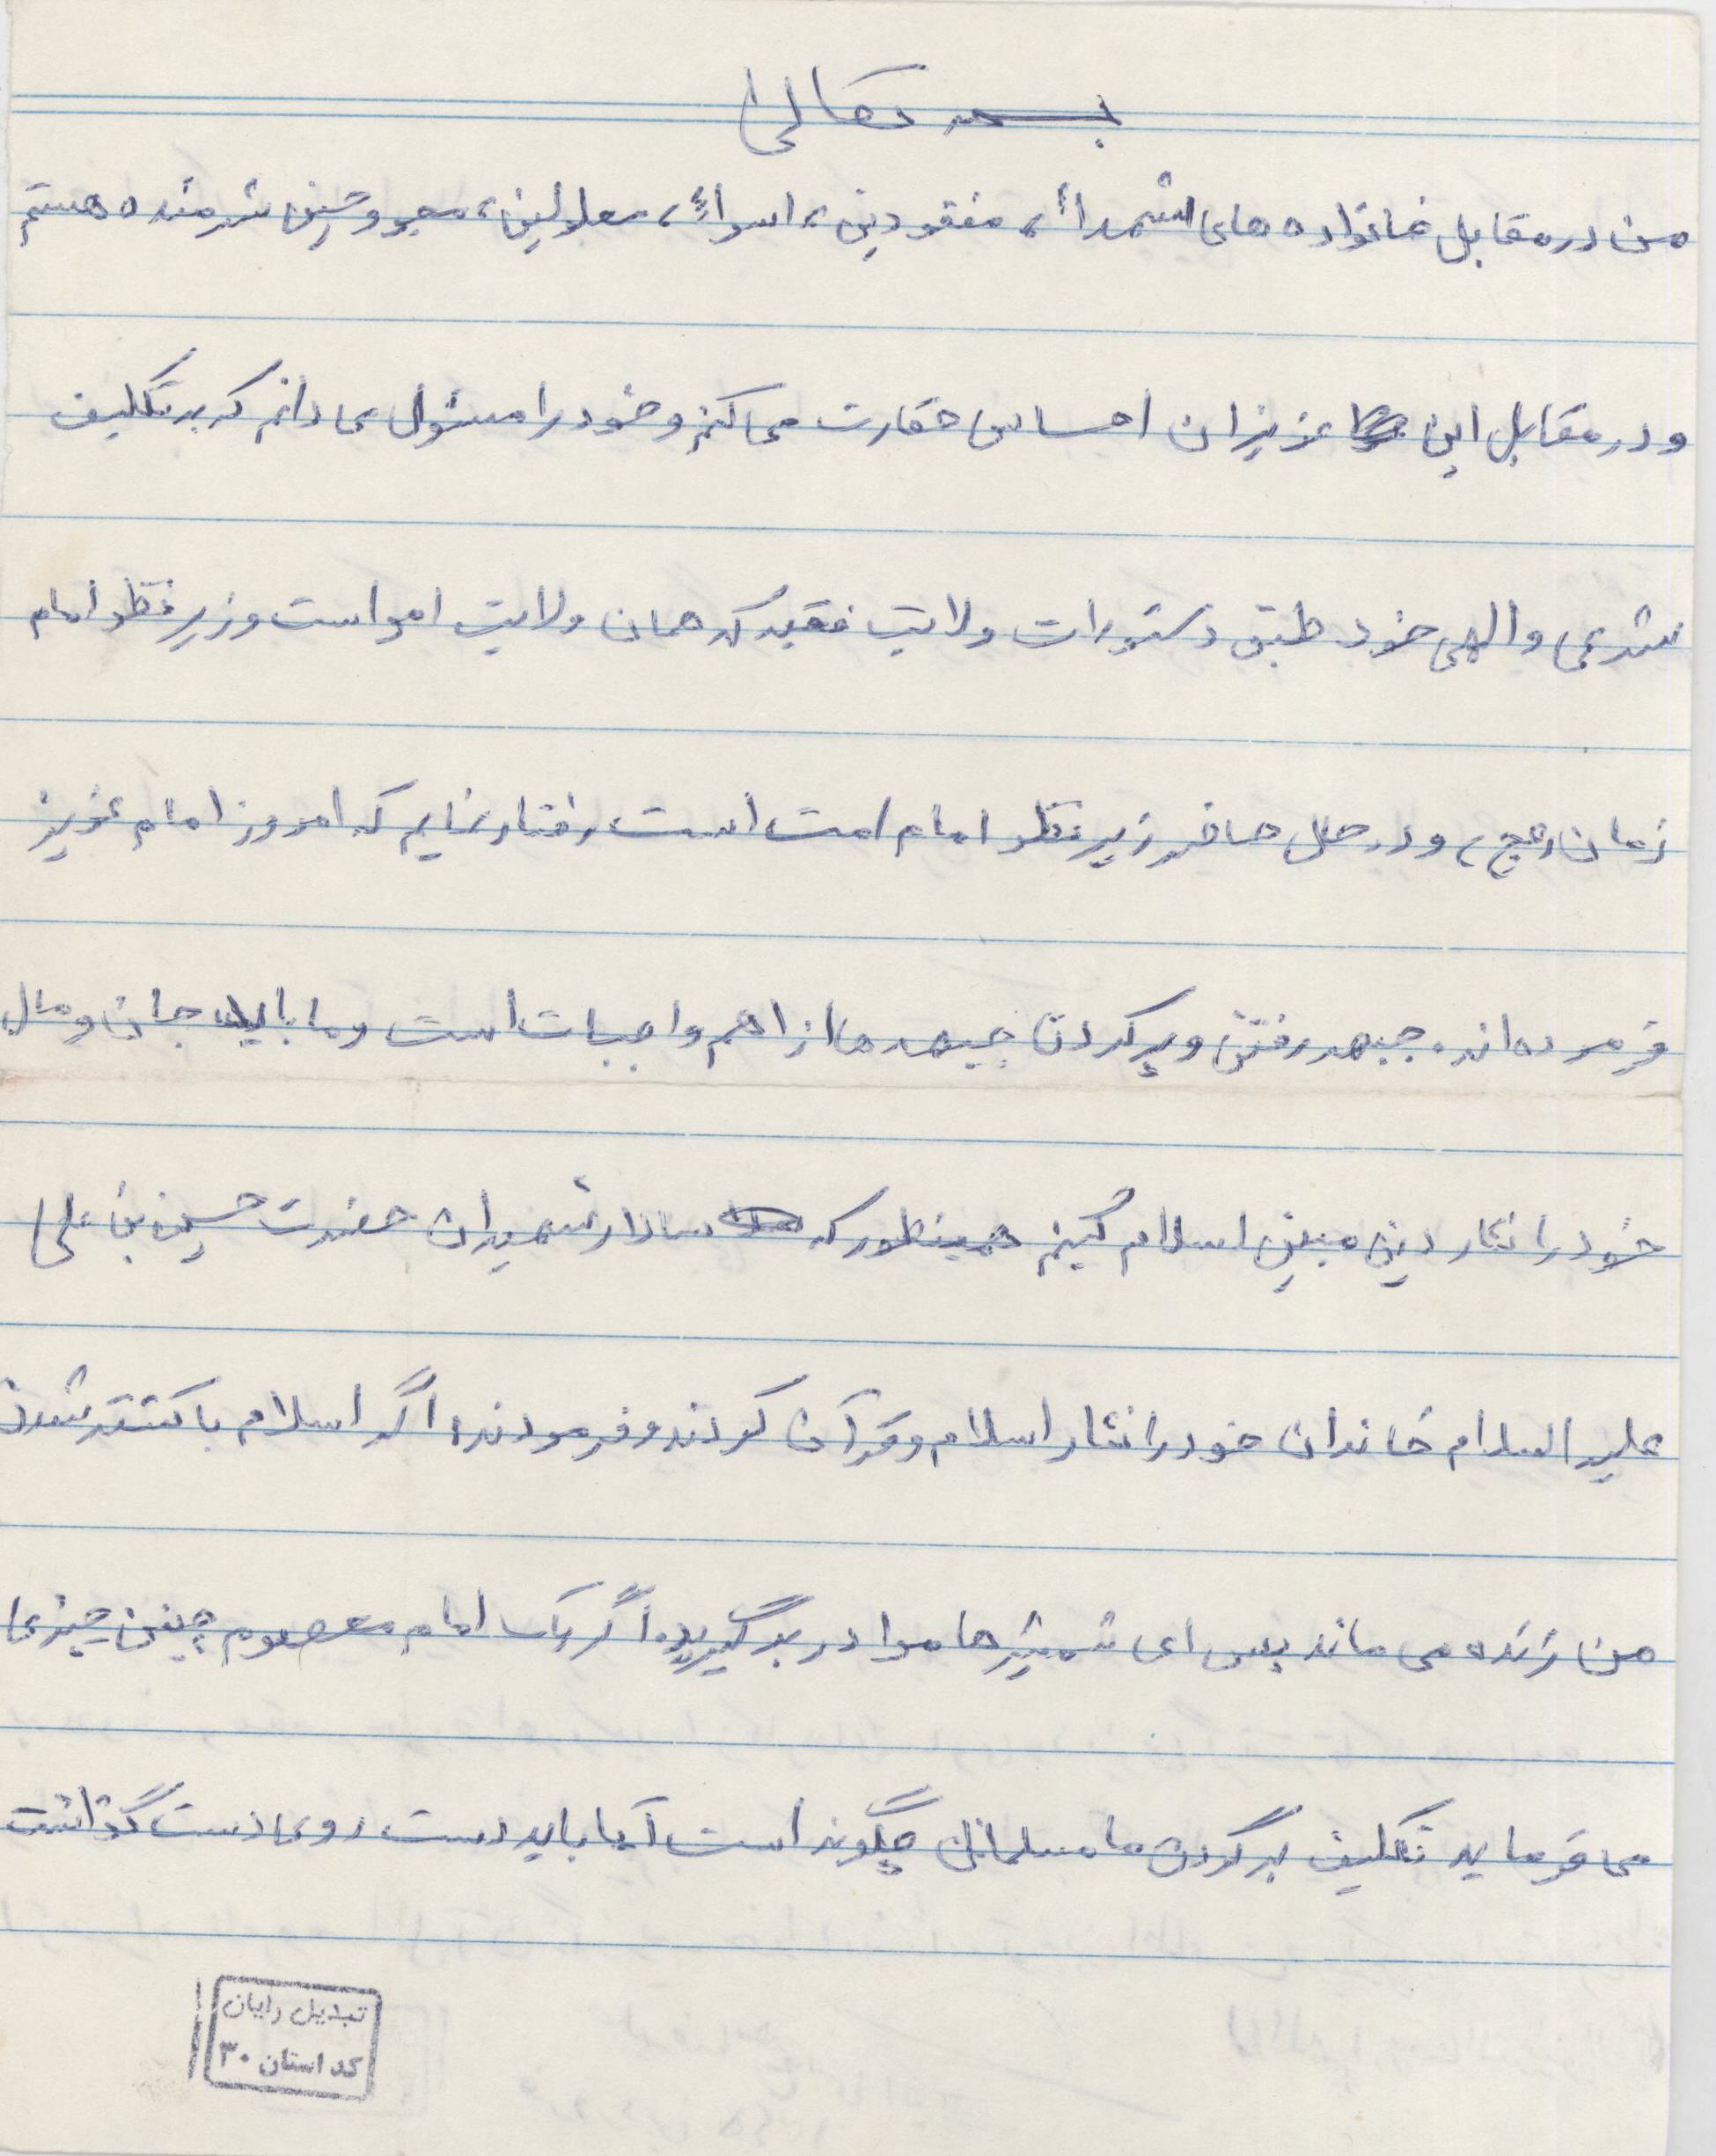 بسمه تعالی
من در مقابل خانواده های شهداء، مفقودین، اسراء، معلولین، مجروحین شرمنده هستم
و در مقابل این عزیزان احساس حقارت می کنم و خود را مسئول می دانم که به تکلیف
شرعی و الهی خود طبق دستورات ولایت فقیه که همان ولایت امر است و زیر نظر امام
زمان (عج)، و در حال حاضر زیر نظر امام امت است رفتار نمایم که امروز امام عزیز
فرموده اند. جبهه رفتن و پر کردن جبهه ها از اهم واجبات است و ما باید جان و مال
خود را نثار دین مبین اسلام کنیم همینطور که سالار شهیدان حضرت حسین بن علی
علیه السلام خاندان خود را نثار اسلام و قرآن کردند و فرمودند: اگر اسلام با کشته شدن
من زنده می ماند پس ای شمشیرها مرا در بر گیرید. اگر یک امام معصوم چنین چیزی
می فرماید تکلیف بر گردن ما مسلمانان چگونه است آیا باید دست روی دست گذاشت
تبدیل رایان
کد استان ۳۰